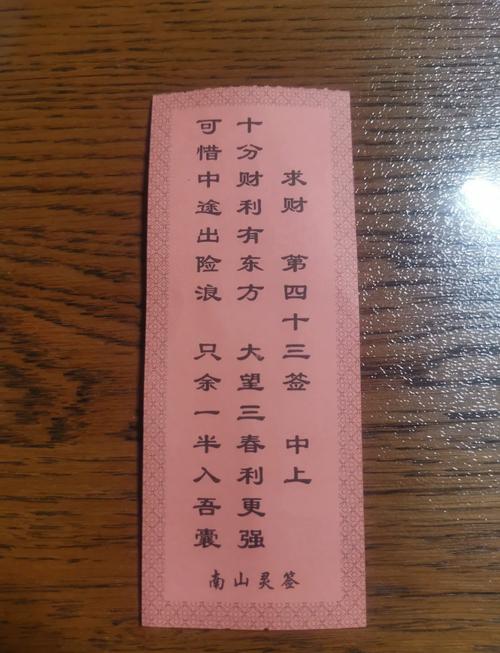 求财 第四十三签 中上
十分财利有东方 大望三春利更强
可惜中途出险浪 只余一半入吾囊
南山灵签